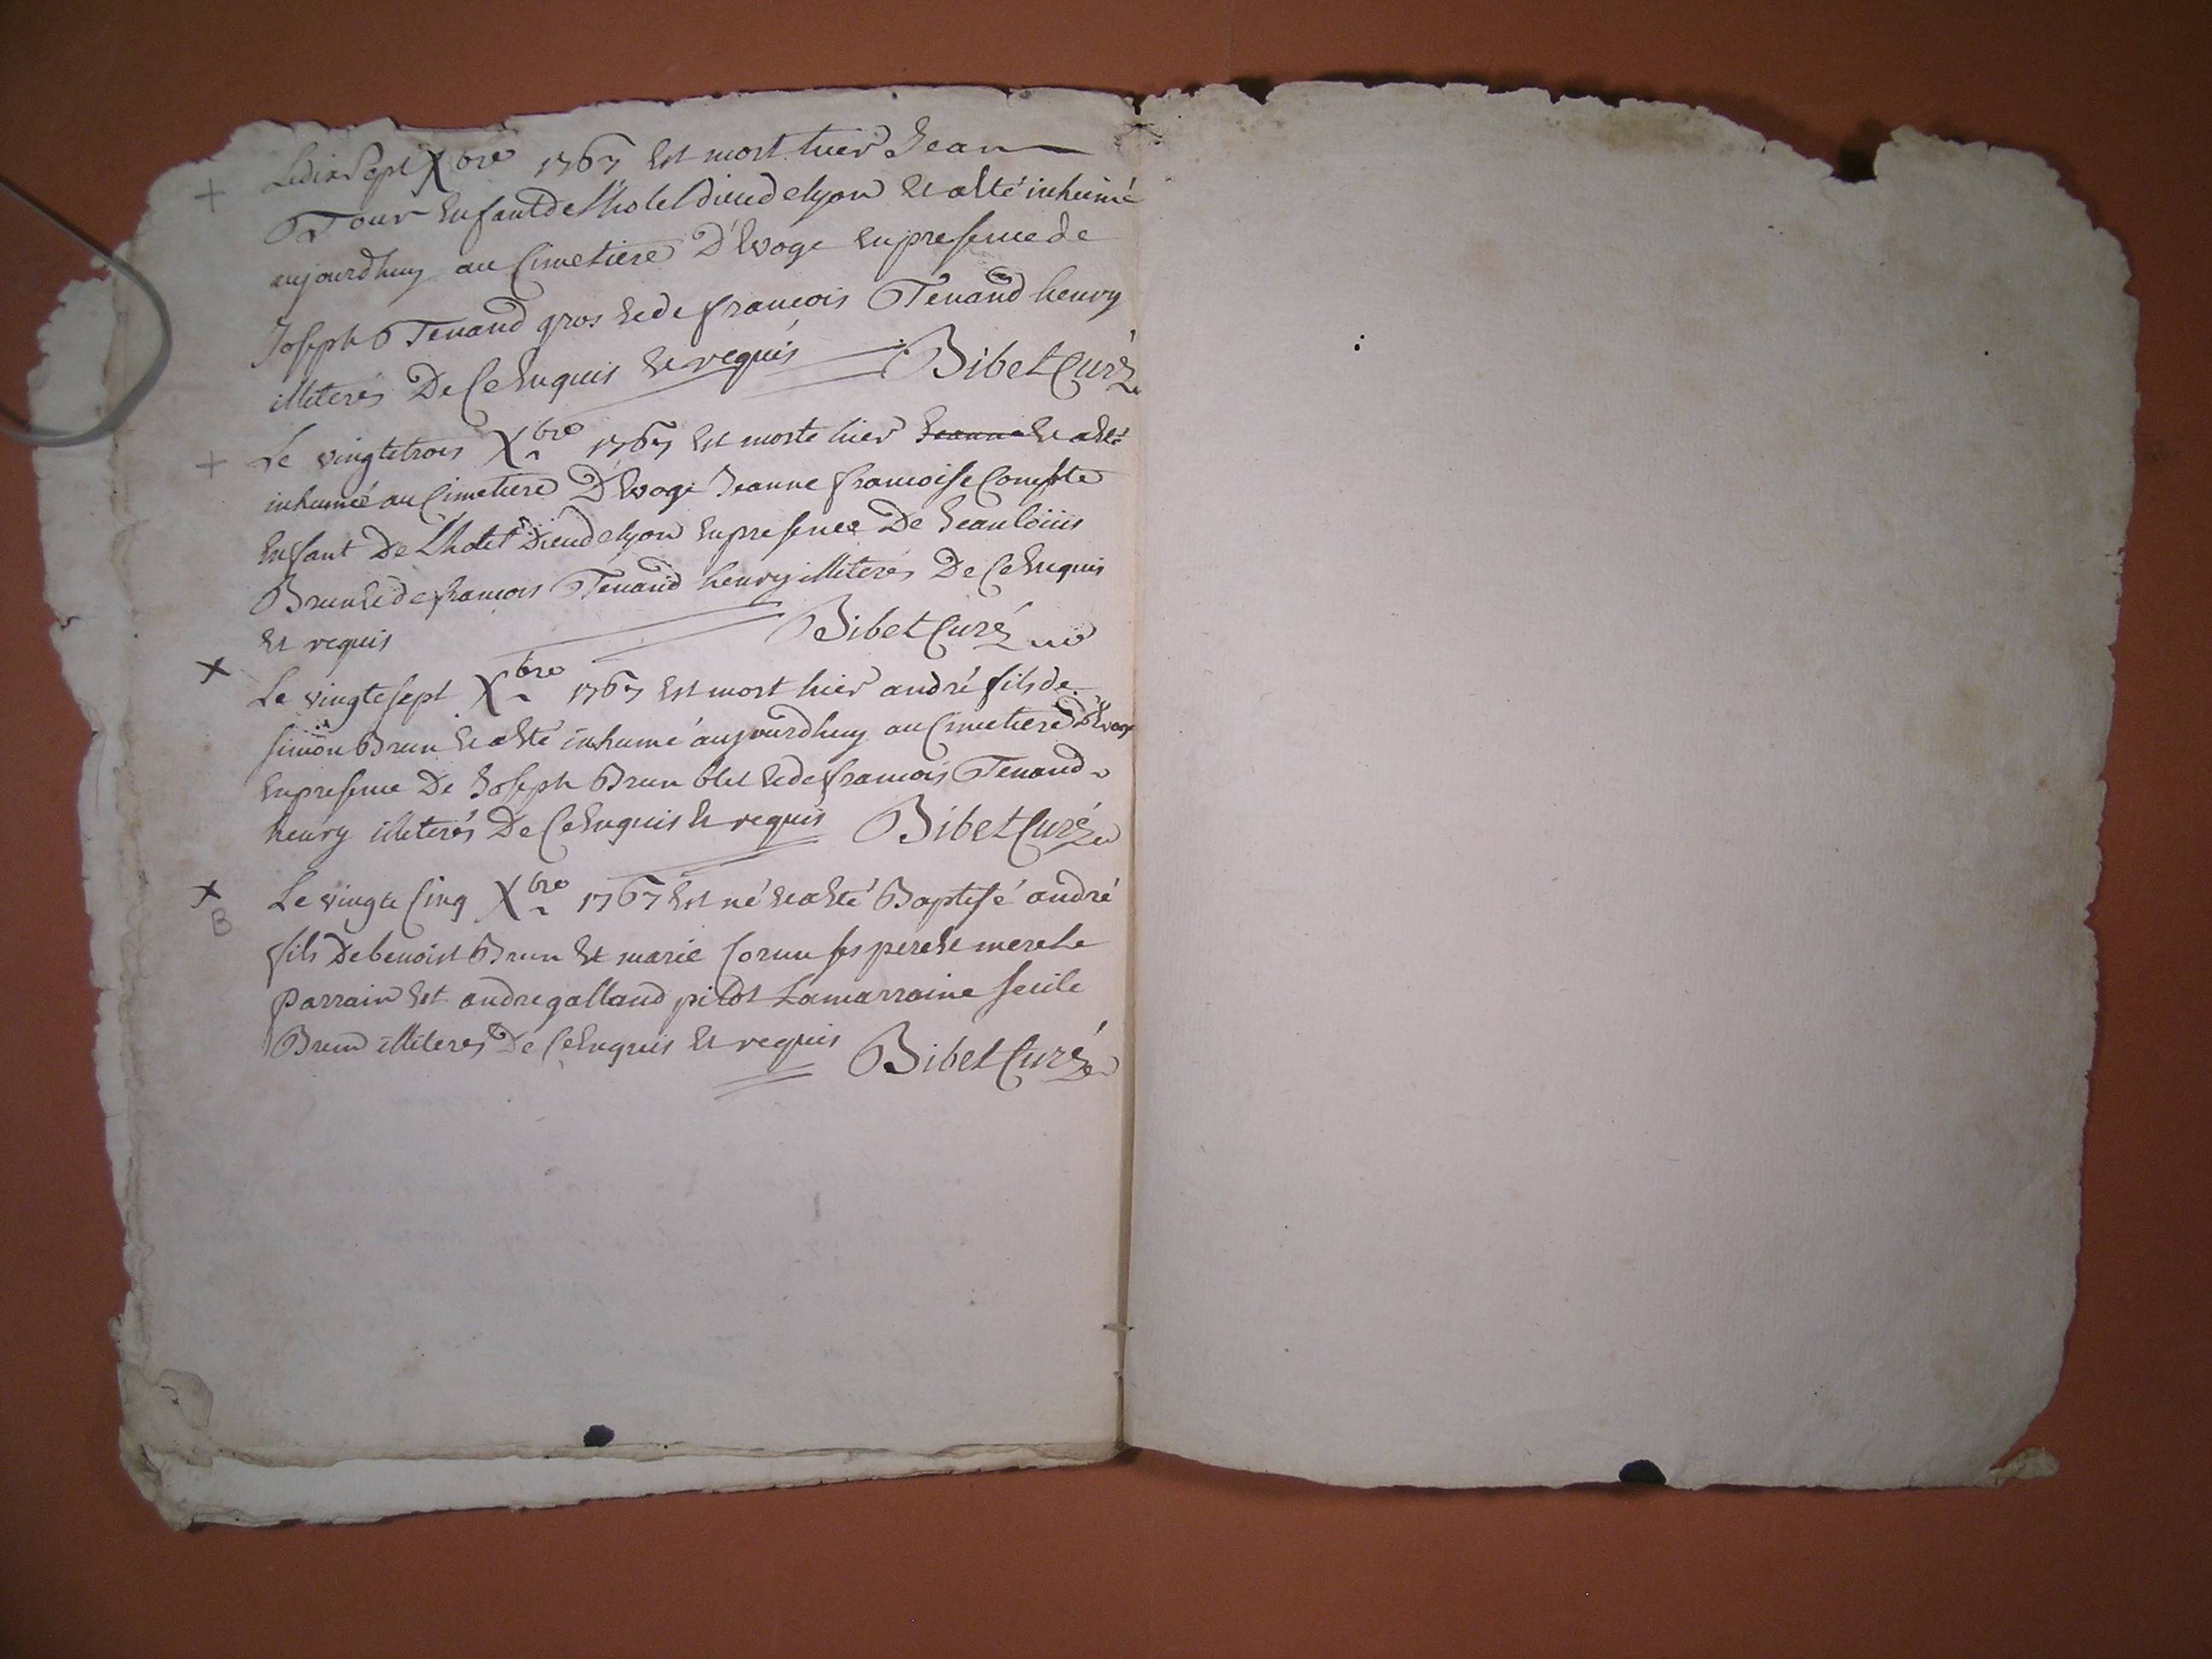 + Le dix Sept Xbre 1767 Est mort hier Jean
Tour Enfant de l'hotel dieu de lyon Et a Eté inhumé
aujourdhuy au Cimetiere D'Evoge En presence de
Joseph Tenand gros Et de françois Tenand henry
illiterés De Ce Enquis Et requis Bibet Curé
+ Le vingtetrois Xbre 1767 Est morte hier Jeanne Et a Eté
inhumée au Cimetiere D'Evoge Jeanne francoise Compte
Enfant De L'hotel Dieu de lyon En presence De Jean loüis
Brun Et de francois Tenand henry illiterés De Ce Enquis
Et requis Bibet Curé
x Le vingtesept Xbre 1767 Est mort hier andré fils de
simon Brun Et a Eté inhumé aujourdhuy au Cimetiere d'Evoge
En presence De Joseph Brun Et de francois Tenand
henry illiterés De Ce Enquis Et requis Bibet Curé
x Le vingte Cinq Xbre 1767 Est né Et a Eté Baptisé andré
B
fils De benoist Brun Et marie Cornu ses pere Et mere Le
parrain Est andre galland pilot La marraine secile
Brun illiteres De Ce Enquis Et requis Bibet Curé